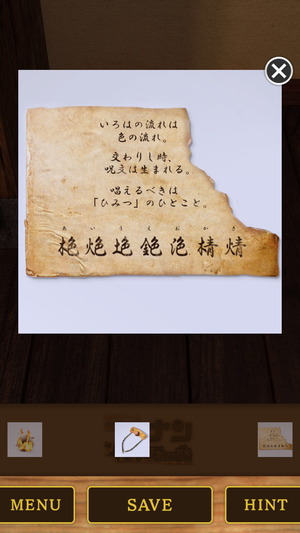 いろはの流れは
色の流れ。
交わりし時、
呪文は生まれる。
唱えるべきは
「ひみつ」のひとこと。
あ い う え お か き
MENU
SAVE
HINT